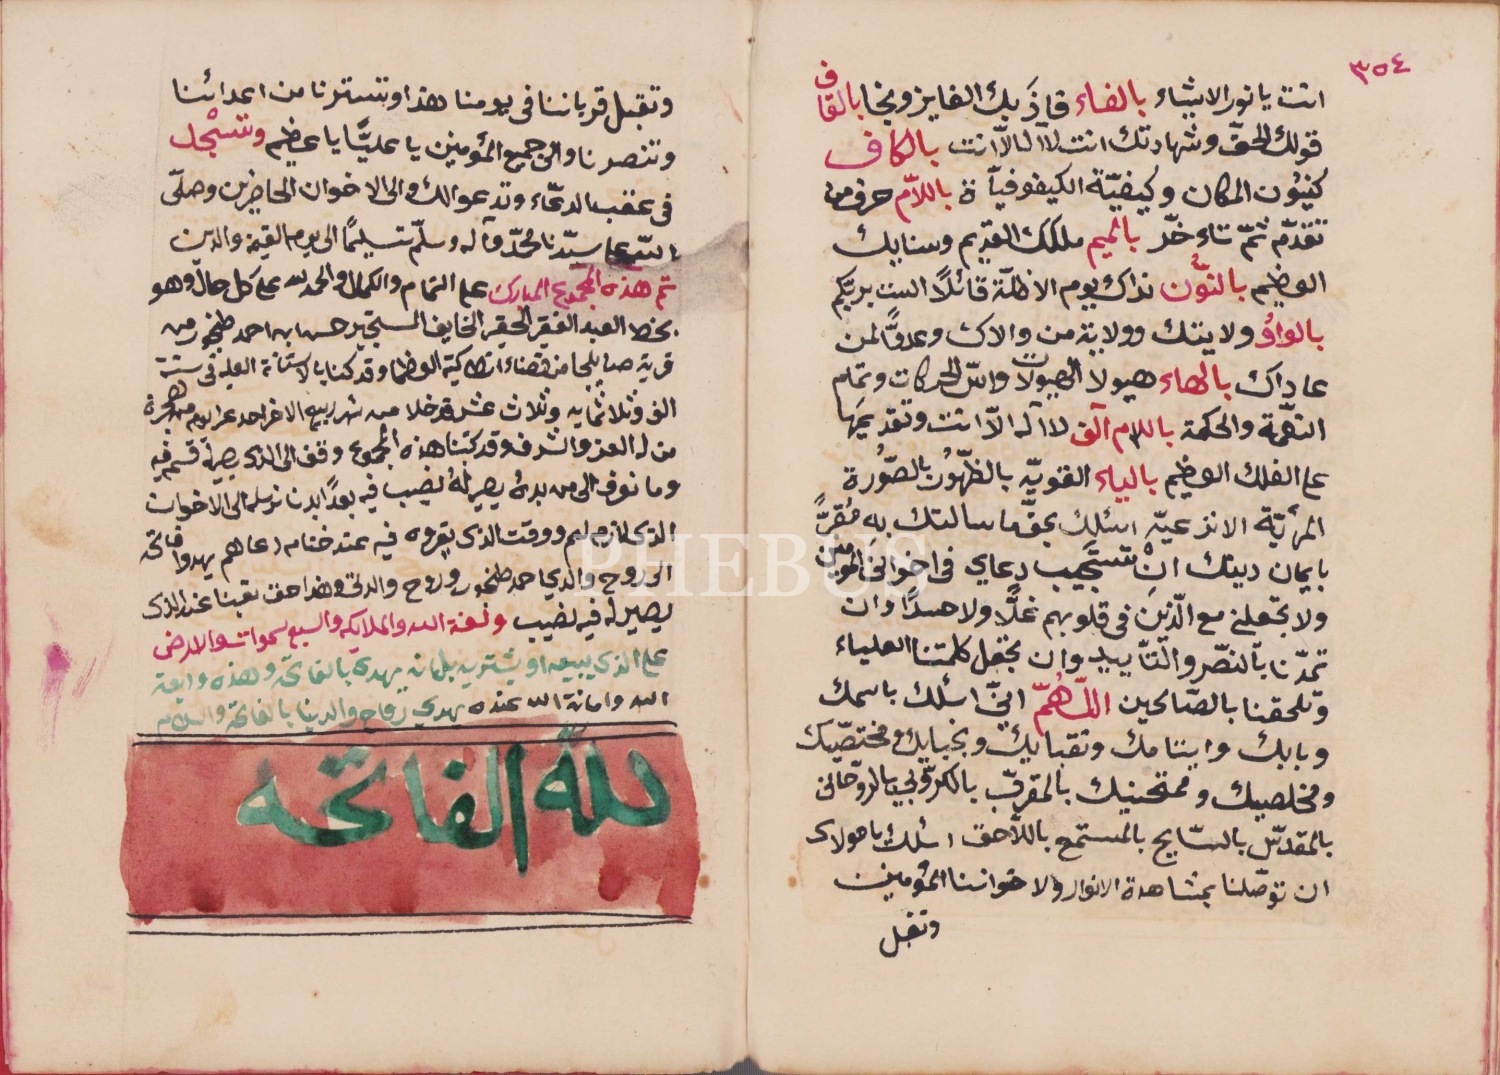 ٣٥٤
انت يا نور الاشياء بالفاء فاذ بك الفايز ونجا بالقاف
قولك الحقّ وشهادتك انت لا اله الّا انت بالكاف
كينون المكان وكيفيّة الكيفوفيّة باللّام حرف من
تقدّم ثمّ تاءخّر بالميم ملكك القديم وسنا بك
العظيم بالنّون نداك يوم الاظلّة قائلاً الست بربّكم
بالواو ولايتك وولاية من والاك وعدوًّا لمن
عاداك بالهاء هيولا الهيولات واسّ الحركات وتمام
النعمة والحكمة باللام آلف لا اله الّا انت وتقديمها
على الفلك العظيم بالياء القويّه بالظّهور بالصّورة
المرئيّة الانزعيّه اسئلك بحقّ ما سالتك به مُقرًّا
بايمان دينك انْ تستجيب دعاي في اخواني المومنين
ولا تجعلني مع الّذين في قلوبهم غلًّا ولا حسدًا وان
تمدّنا بالنصّر والتّاييد وان تجعل كلمتنا العلياء
وتلحقنا بالصّالحين اللّهُمّ انّي اسئلك باسمك
وبابك وايتامك ونقبايك ونجبايك ومختصّيك
ومخلصيك وممتحنيك بالمقرّب بالكرّوبي بالرّوحاني
بالمقدّس بالسّايح بالمستمع باللّاحق اسئلك يا مولاي
ان توصّلنا بمشاهدة الانوار ولاخواننا المؤمنين
وتقبل
وتقبل قرباننا في يومنا هذا وتسترنا من اعدائنا
وتنصرنا والى جميع المؤمنين يا عليًّا يا عظيم وتسْجل
في عقب الدعّاء وتدعوا لك والى الاخوان الحاضرين وصلّى
اللّه على سيّدنا محمّد وآله وسلّم تسليمًا الى يوم القيمة والدين
تم هذه المجموع المبارك على التمام والكمال والحمد لله على كل حال وهو
بخط العبد الفقير الحقير الخايف المستجير حسابه احمد طنجور من
قرية من قضاء انطاكية العظما وقد كنا بالاستانة العليه في سنة
الف وثلاثمايه وثلاث عشر قد خلا من شهر ربيع الاخر احد عر ايوم من هجرة
من له العز والشرف وقد كتبنا هذه المجموع وقف الى الذي يصير له قسم فيه
وما نوف الى من بده يصير له نصيب فيه بعدًا بدنا نرسله الى الاخوان
الذي لازم لهم ووقت الذي يقروه فيه عند ختام دعاهم يهدوا فاتحه
الى روح والدي احمد طنجور وروح والدتي وهذا حق تقبنا عند الذي
يصير له فيه نصيب ولعنة الله والملايكه والسبع سموات والارض
على الذي يبيعه او يشتريه بل انه يهدي بالفاتحه وهذه وديعة
الله وامانة الله عنده يهدي رواح والدينا بالفاتحة والسلام
لله الفاتحه
PHEBUS